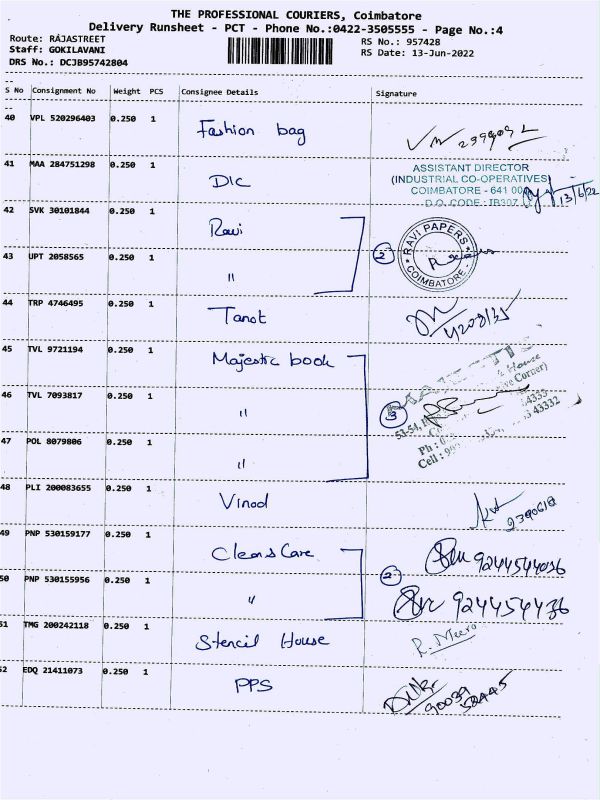 THE PROFESSIONAL COURIERS, Coimbatore
Delivery Runsheet - PCT - Phone No.:0422-3505555 - Page No.:4
Route: RAJASTREET
RS No.: 957428
Staff: GOKILAVANI
RS Date: 13-Jun-2022
DRS No.: DCJB95742804
S No Consignment No Weight PCS Consignee Details Signature
40 VPL 520296403 0.250 1 Fashion bag
41 MAA 284751298 0.250 1 DIC
ASSISTANT DIRECTOR
(INDUSTRIAL CO-OPERATIVES)
COIMBATORE - 641 00
D.O. CODE: IB307 13/6/22
42 SVK 30101844 0.250 1 Ravi
2 RAVI PAPERS COIMBATORE
43 UPT 2058565 0.250 1 "
44 TRP 4746495 0.250 1 Tanot
45 TVL 9721194 0.250 1 Majestic book
46 TVL 7093817 0.250 1 "
3
53-54,
Ph :
Cell : 43332
47 POL 8079806 0.250 1 "
48 PLI 200083655 0.250 1 Vinod
49 PNP 530159177 0.250 1 Cleans Care
2
50 PNP 530155956 0.250 1 " 924454436
51 TMG 200242118 0.250 1 Stencil House R. Meero
52 EDQ 21411073 0.250 1 PPS 90039
52445